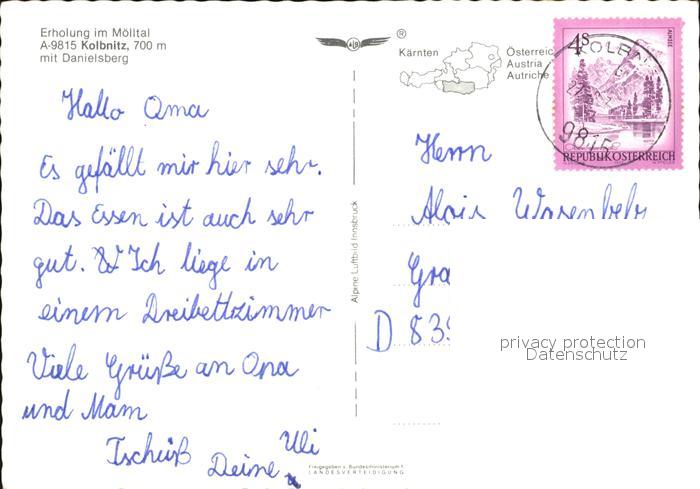 Erholung im Mölltal
A-9815 Kolbnitz, 700 m
mit Danielsberg
Hallo Oma
Es gefällt mir hier sehr.
Das Essen ist auch sehr
gut. Ich liege in
einem Dreibettzimmer
Viele Grüße an Opa
und Mam
Tschüß
Deine Uli
Alpine Luftbild Innsbruck
Freigegeben v. Bundesministerium f.
LANDESVERTEIDIGUNG
®
Kärnten
Österreic
Austria
Autriche
4S
ALMSEE
REPUBLIK ÖSTERREICH
9815
Herrn
Alois
Gra
D 839
privacy protection
Datenschutz